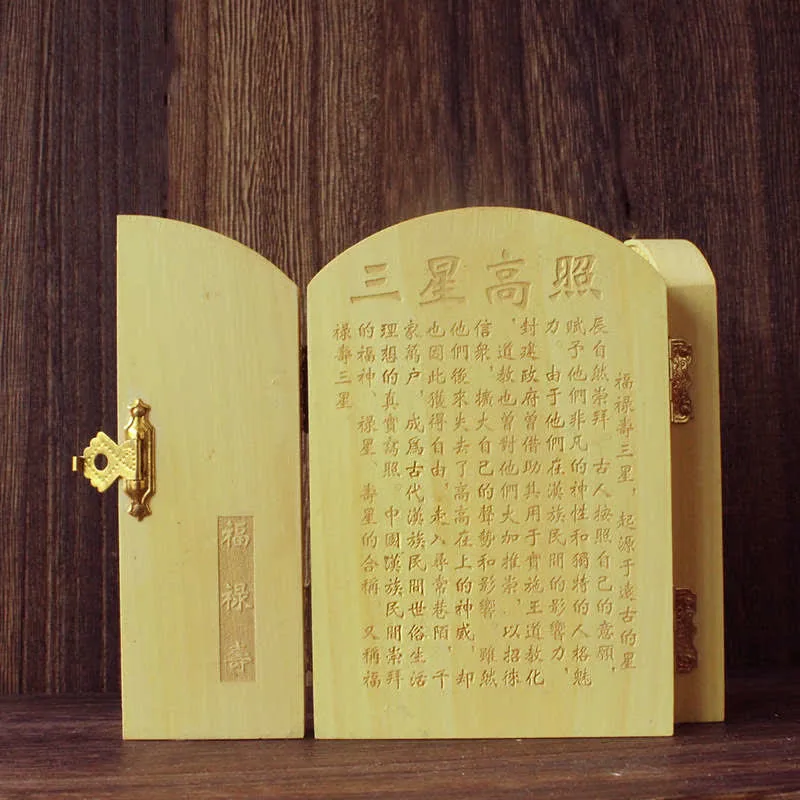 三星高照
福禄壽三星，起源于遠古的星
辰自然崇拜 古人按照自己的意願，
賦予他們非凡的神性和獨特的人格魅
力。由于他們在漢族民間的影響力，
封建政府曾借助其用于實施王道教化
，道教也曾對他們大加推崇，以招徠
信衆，擴大自己的聲勢和影響。雖然
他們後來失去了高高在上的神威，却
也因此獲得自由，走入尋常巷陌，千
家萬户，成爲古代漢族民間世俗生活
理想的真實寫照。中國漢族民間崇拜
的福神、禄星、壽星的合稱，又稱福
禄壽三星
福禄壽